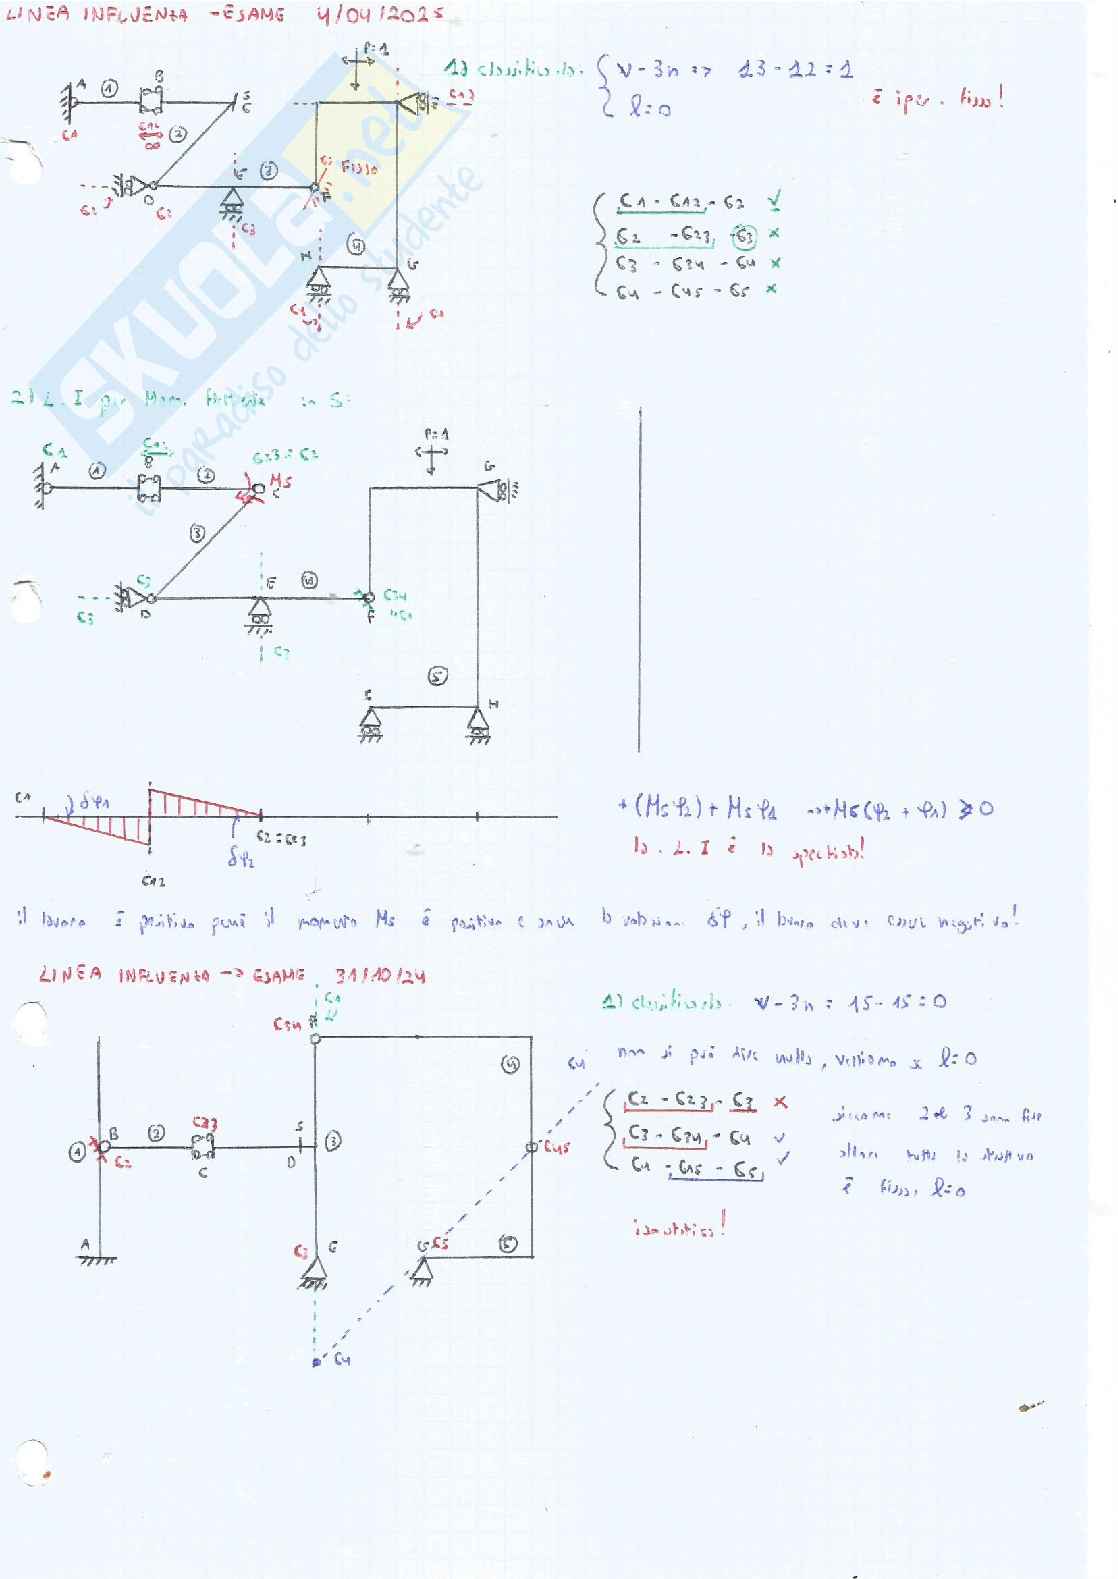 LINEA INFLUENZA - ESAME 4/04/2025
P=1
1) classificando. { v - 3n => 13 - 12 = 1
l=0
È iper. fisso!
A 1 B S C
C1 C12 ∞ 2
C13
D E 3 F FISSO
C2 C3
H 4 G
C1 - C12 - C2 ✓
C2 - C23 - C3 ×
C3 - C34 - C4 ×
C4 - C45 - C5 ×
2) L. I per Mom. flettente in S:
SKUOLA.net
il paradiso dello studente
P=1
C1 A 1 C12 B 2 C23 = C2 MS C
G
3
C3 D E F C34
C3
5
I
C1 δφ1 C12 δφ2 C2=C23
+(Ms φ2) + Ms φ1 → +Ms(φ2 + φ1) ≥ 0
la L. I è la spettata!
il lavoro è positivo perché il momento Ms è positivo e anche la variazione Δφ, il lavoro deve essere negativo!
LINEA INFLUENZA -> ESAME 31/10/24
1) classificando. v - 3n = 15 - 15 = 0
non si può dire nulla, vediamo se l=0
C2 - C23 - C3 ×
C3 - C34 - C4 ✓
C4 - C45 - C5 ✓
siccome 2 e 3 sono fisse
allora tutta la struttura
è fissa, l=0
isostatica!
C34 4 C4
1 B 2 C23 S 3 C45
C2 C D
A C3 E G C5 5
C4